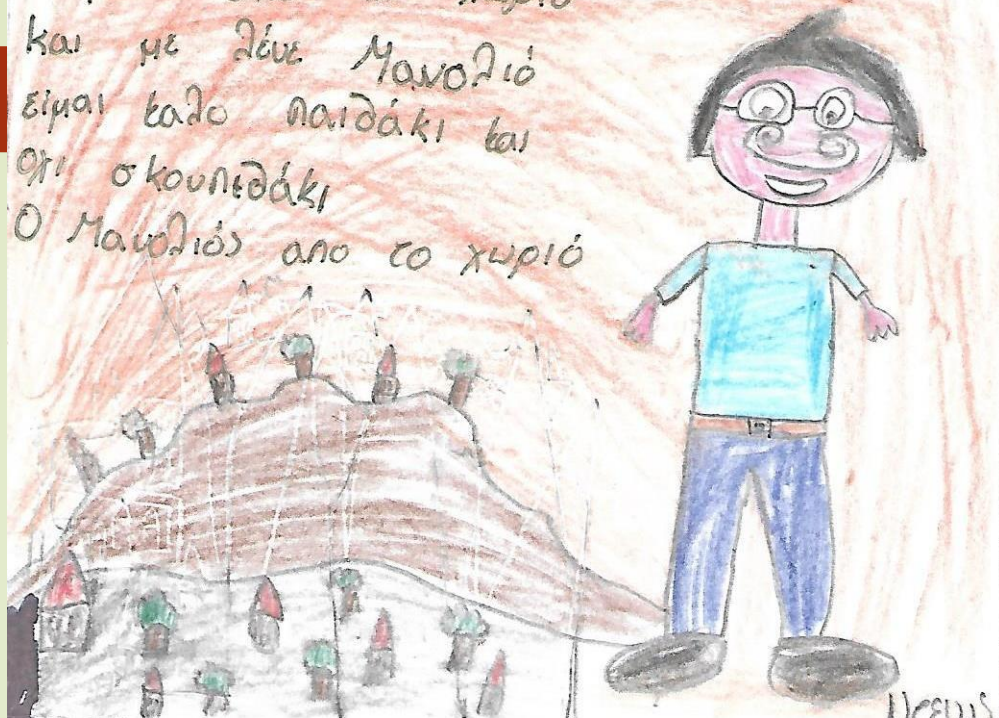 και με λένε Μανολιό
είμαι καλο παιδάκι και
οχι σκουπιδάκι
Ο Μανολιός απο το χωριό